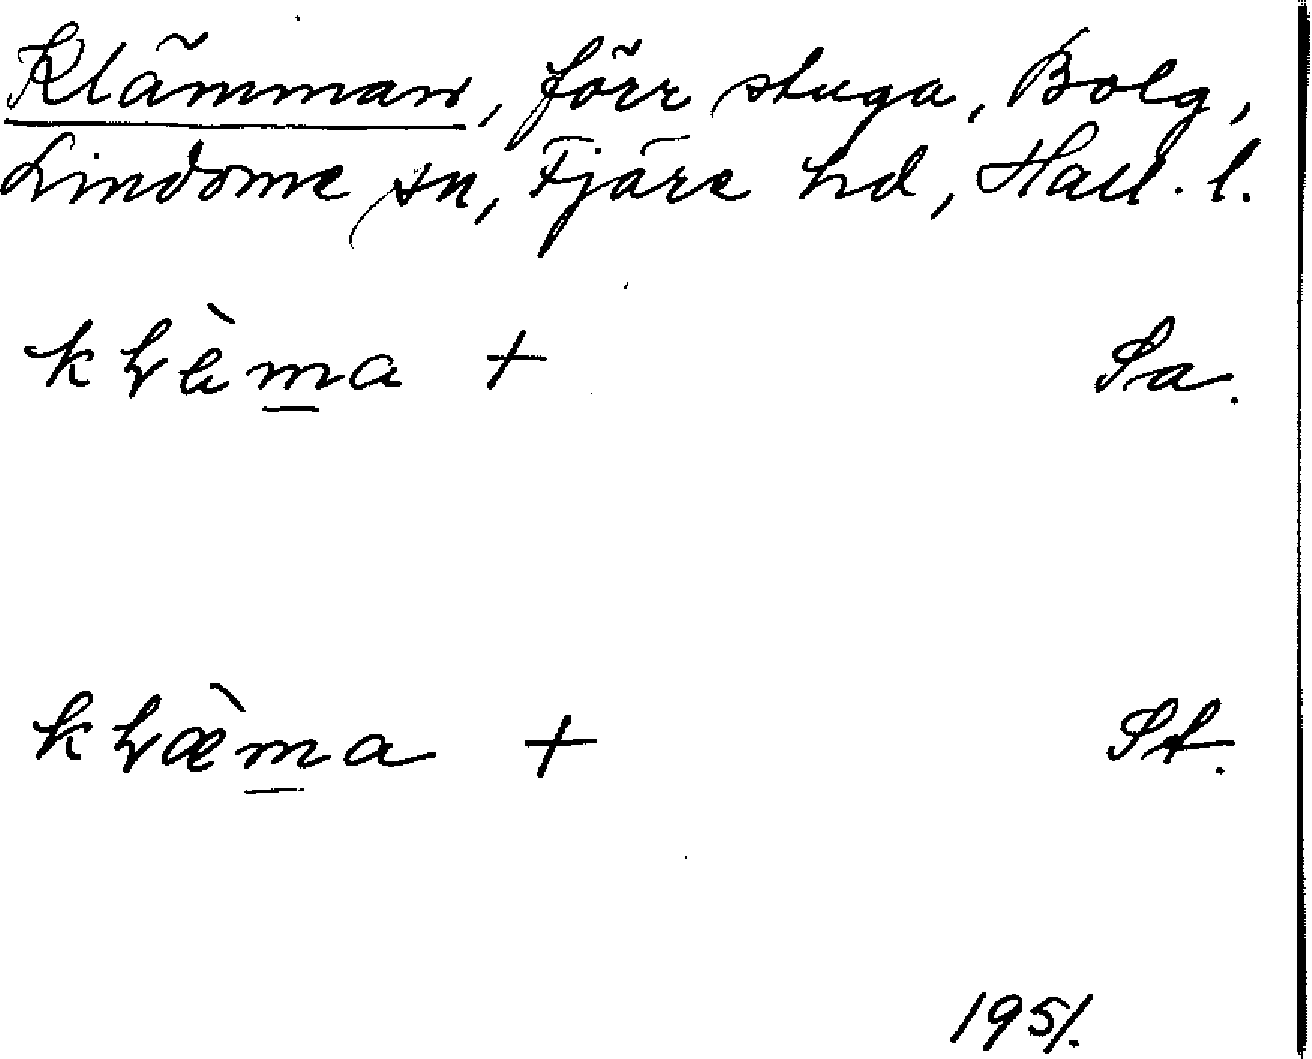 Klämman, förr stuga, Bolg,
Lindome sn, Fjäre hd, Hall. l.
kḷèm̲a + Sa.
kḷæ̀m̲a + St.
1951.